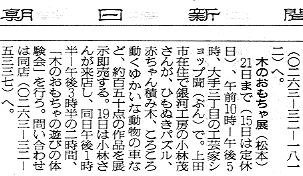 朝日新聞
（０２６３－３２－１８１
２）へ。
木のおもちゃ展（松本）
21日まで（15日は定休
日）、午前10時－午後５
時、大手三丁目の工芸家シ
ョップ聞（ぶん）で。上田
市在住で銀河工房の小林茂
さんが、ひもぬきパズル、
赤ちゃん積み木、ころころ
動くゆかいな動物の車な
ど、約百五十点の作品を展
示即売する。19日は小林さ
んが来店し、同日午後１時
半－午後３時半の二時間、
「木のおもちゃの遊びの体
験会」を行う。問い合わせ
は同店（０２６３－３２－
５３３７）へ。